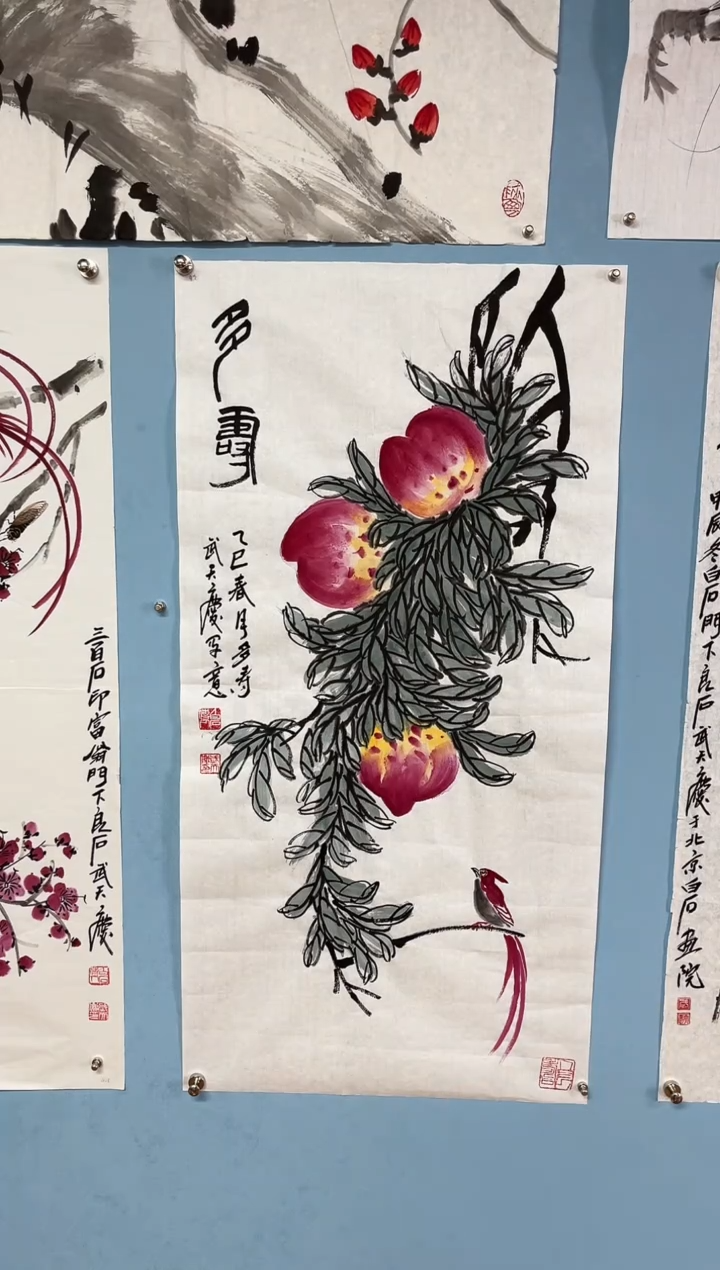 多壽
乙巳春月多寿
武天慶写意
三百石印富翁門下良石武天慶
甲辰冬白石門下良石武天慶于北京白石画院